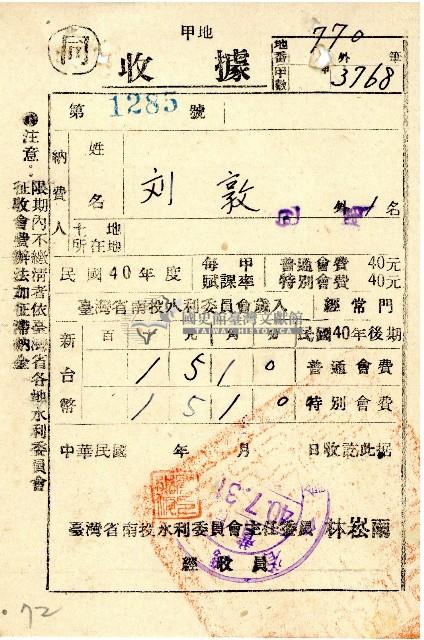 甲地
同
收據
地番甲數
770
外 筆
甲
3768
第 1285 號
納費人
姓名
刘敦
外 1 名
土地所在地
民國40年度
每甲賦課率
普通會費 40元
特別會費 40元
臺灣省南投水利委員會歲入 經常門
國史館臺灣文獻館
新台幣
百 元 角 分
民國40年後期
1 5 1 0 普通會費
1 5 1 0 特別會費
中華民國 年 月 日收訖此据
40.7.31
臺灣省南投水利委員會主任委員 林崧雨
經收員
注意:限期內不繳清者依臺灣省各地水利委員會
征收會費辦法加征滯納金
72